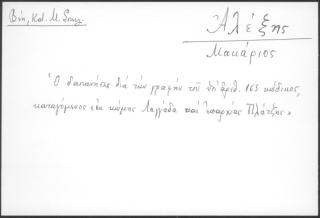 Βέη, Κατ. Μ. Σπηλ.
Ἀλέξης
Μακάριος
Ὁ δαπανήσας διὰ τὴν γραφὴν τοῦ ὑπ' ἀριθ. 163 κώδικος,
καταγόμενος «ἐκ κώμης Λαγγάδα καὶ ἐπαρχίας Πλάτζης»